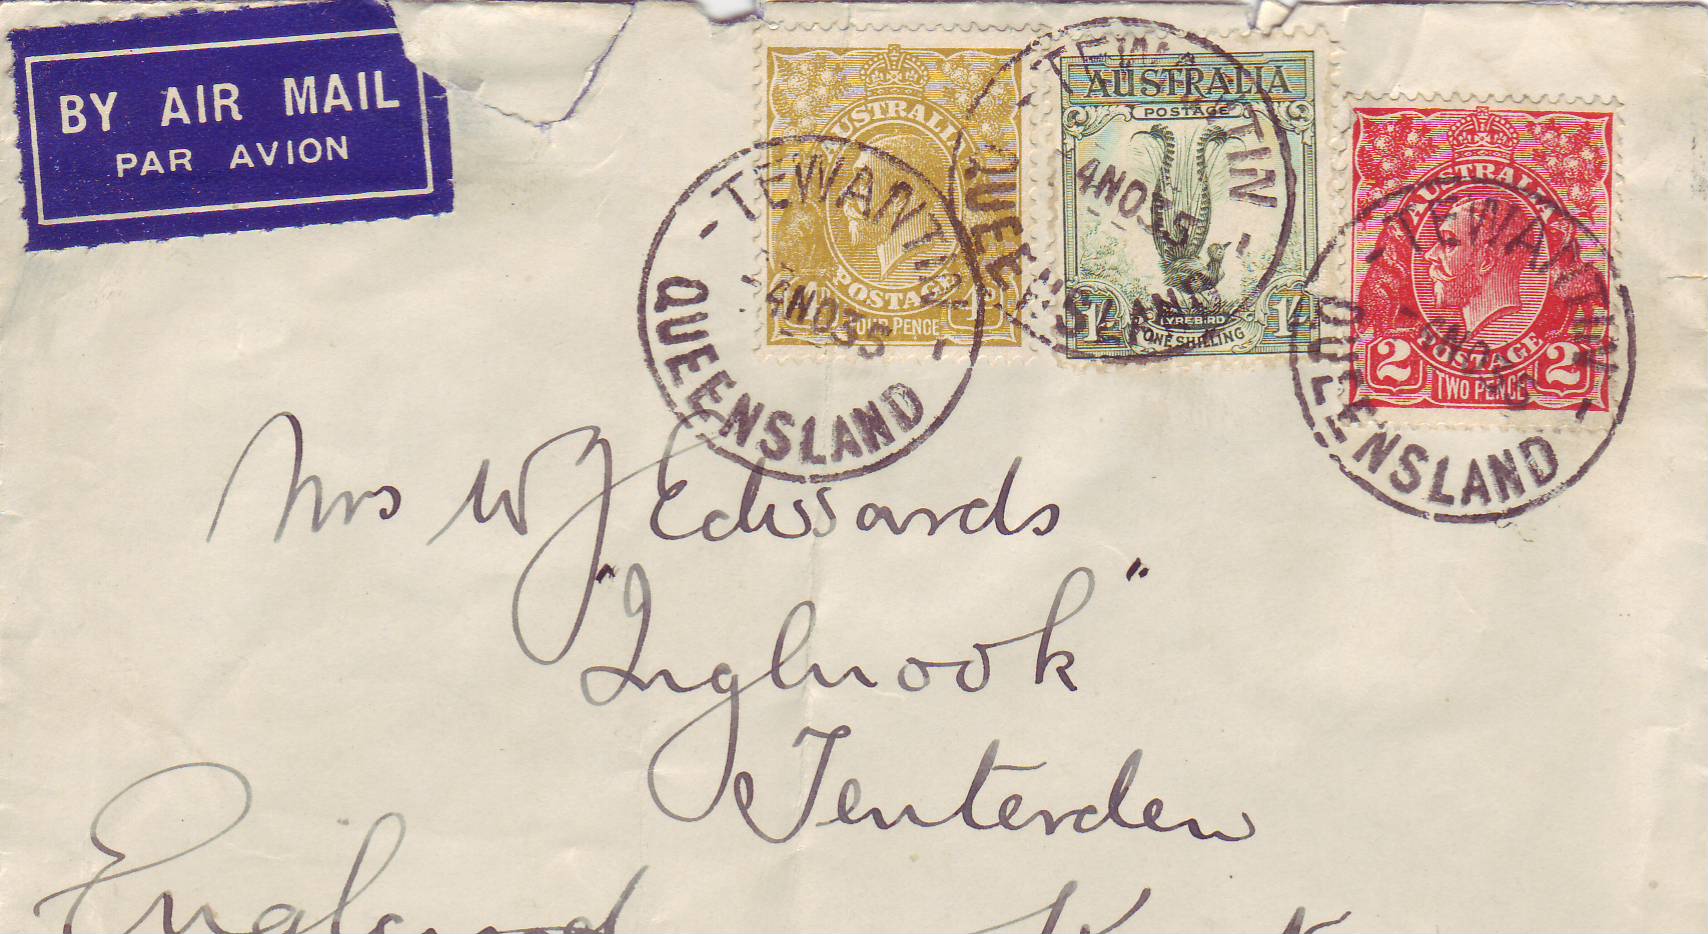 BY AIR MAIL
PAR AVION
AUSTRALIA
POSTAGE
FOUR PENCE
AUSTRALIA
POSTAGE
1/- 1/-
LYREBIRD
ONE SHILLING
AUSTRALIA
POSTAGE
2 2
TWO PENCE
- TEWANTIN -
4 NO 35
QUEENSLAND
- TEWANTIN -
4 NO 35
QUEENSLAND
- TEWANTIN -
QUEENSLAND
Mrs W J Edwards
"Inglnook"
Tenterden
England Kent